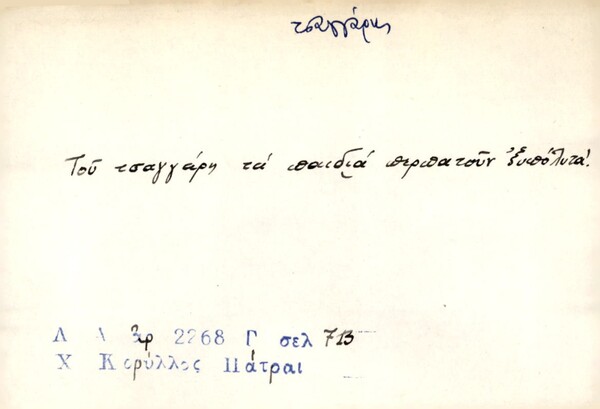 τσαγγάρης
Τοῦ τσαγγάρη τά παιδιά περπατοῦν ξυπόλυτα.
Λ Α ἀρ 2268 Γ σελ 713
Χ Κορύλλος Πάτραι